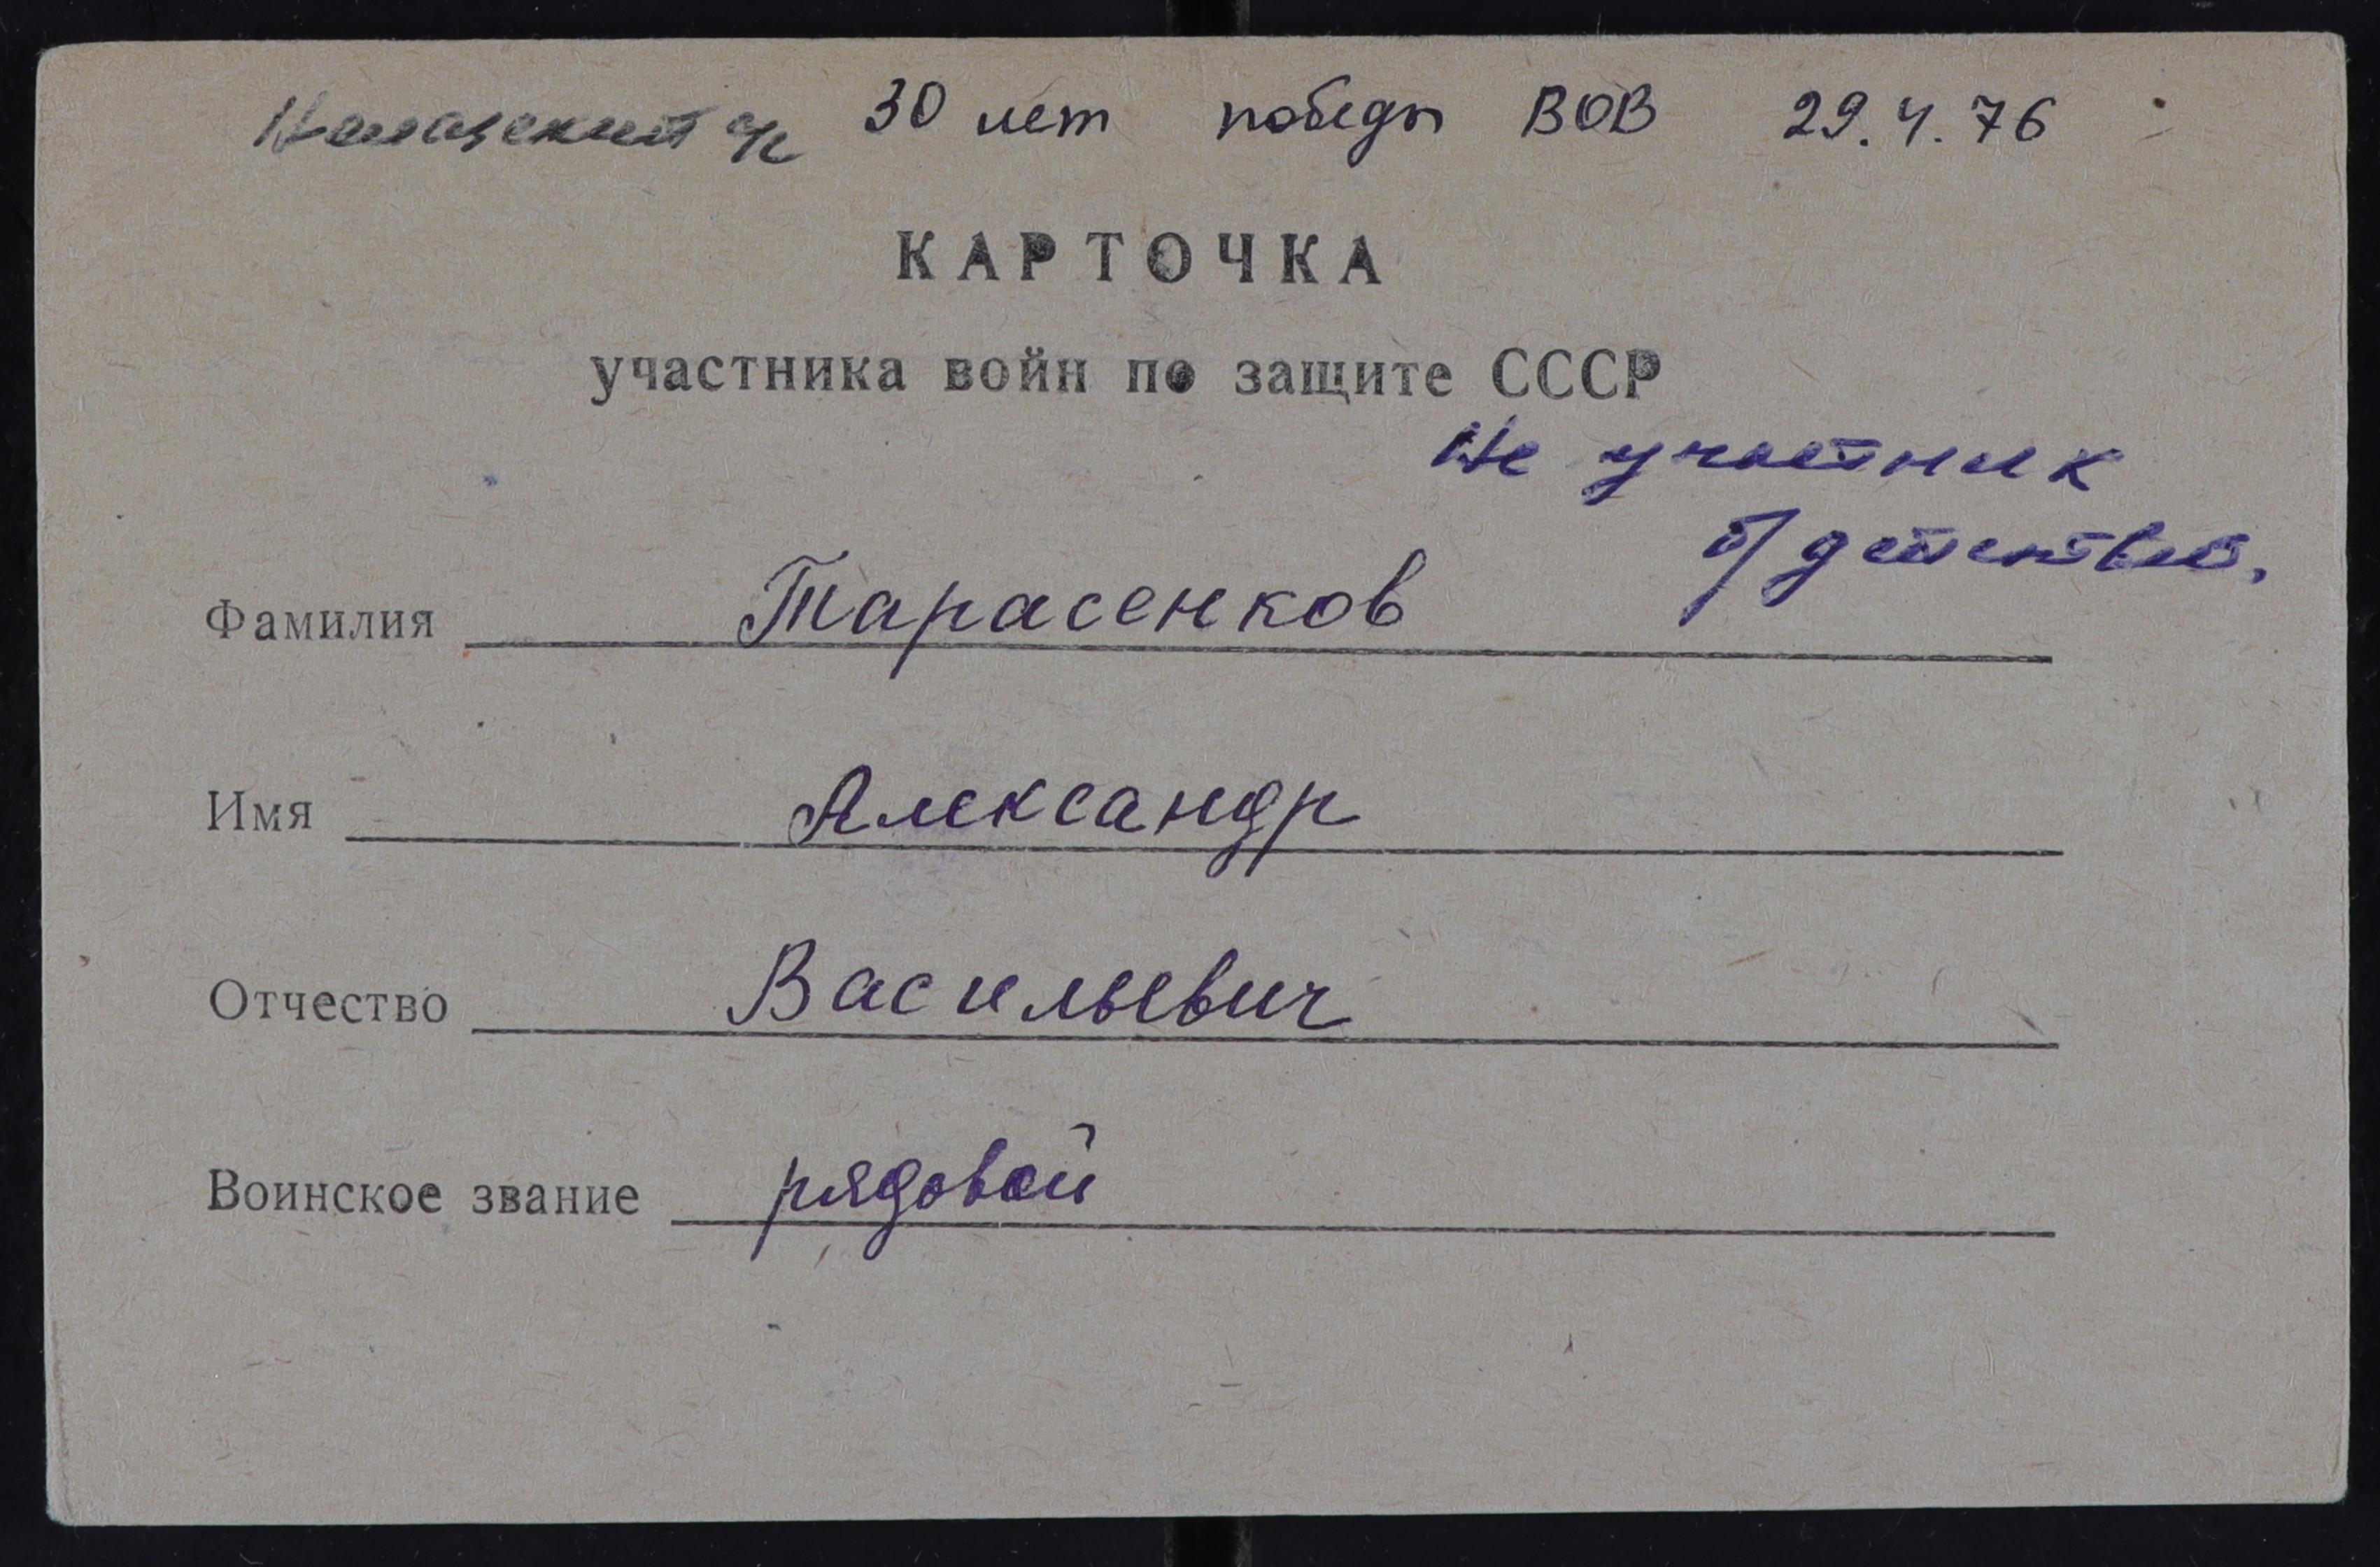 30 лет победы ВОВ 29.4.76
КАРТОЧКА
участника войн по защите СССР
Не участник
б/действий.
Фамилия Тарасенков
Имя Александр
Отчество Васильевич
Воинское звание рядовой